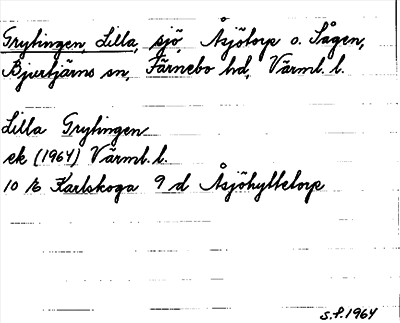 Grytingen, Lilla, sjö, Åsjötorp o. Sågen,
Bjurtjärns sn, Färnebo hd, Värml. l.
Lilla Grytingen
ek (1964) Värml. l.
10 16 Karlskoga 9 d Åsjöhyttetorp
S.F. 1964